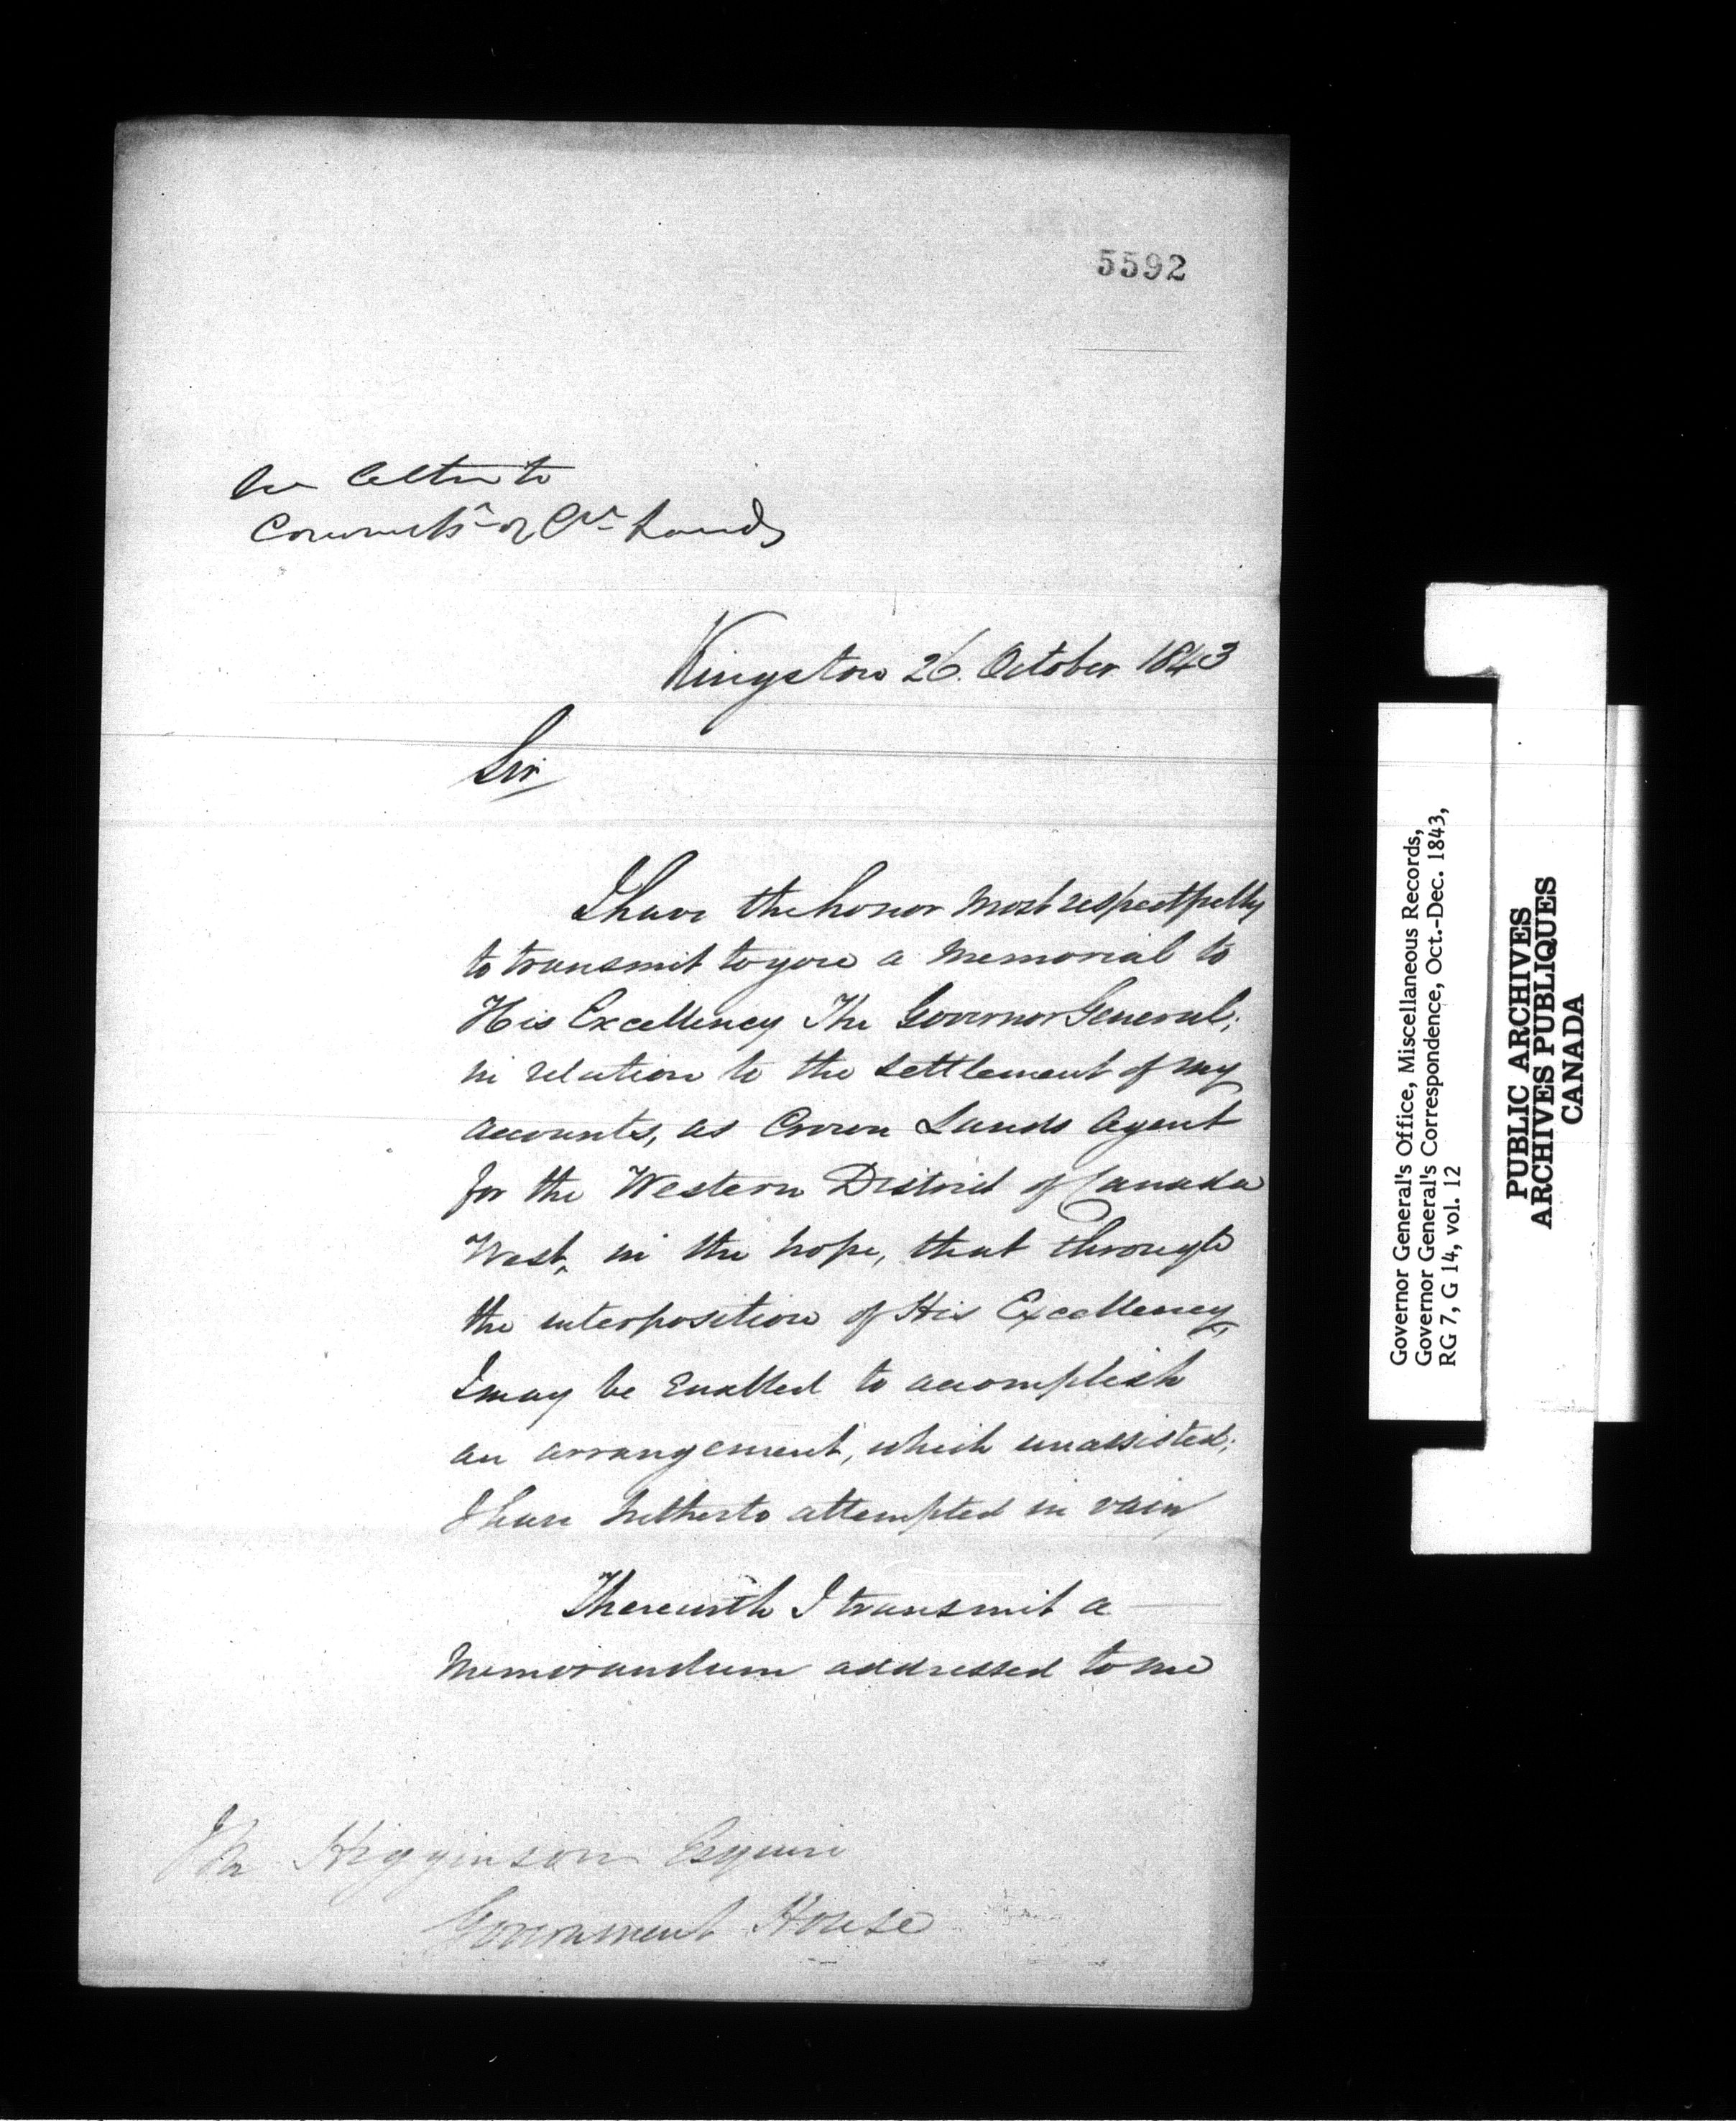 5592
letter to
Commis^r of C^n Lands
Kingston 26. October 1843
Sir
I have the honor most respectfully
to transmit to you a Memorial to
His Excellency The Governor General;
in relation to the settlement of my
accounts, as Crown Lands Agent
for the Western District of Canada
West, in the hope, that through
the interposition of His Excellency,
I may be Enabled to accomplish
an arrangement, which unassisted;
I have hitherto attempted in vain
Therewith I transmit a
Memorandum addressed to me
Higginson Esquire
Government House
Governor General's Office, Miscellaneous Records,
Governor General's Correspondence, Oct.-Dec. 1843,
RG 7, G 14, vol. 12
PUBLIC ARCHIVES
ARCHIVES PUBLIQUES
CANADA